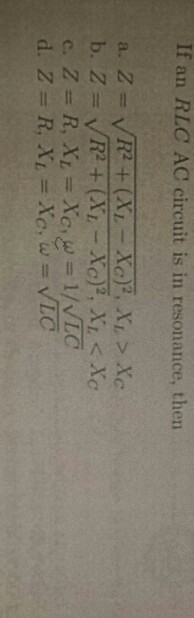 If an RLC AC circuit is in resonance, then
a. Z = √(R² + (X_L − X_C)²), X_L > X_C
b. Z = √(R² + (X_L − X_C)²), X_L < X_C
c. Z = R, X_L = X_C, ω = 1/√LC
d. Z = R, X_L = X_C, ω = √LC